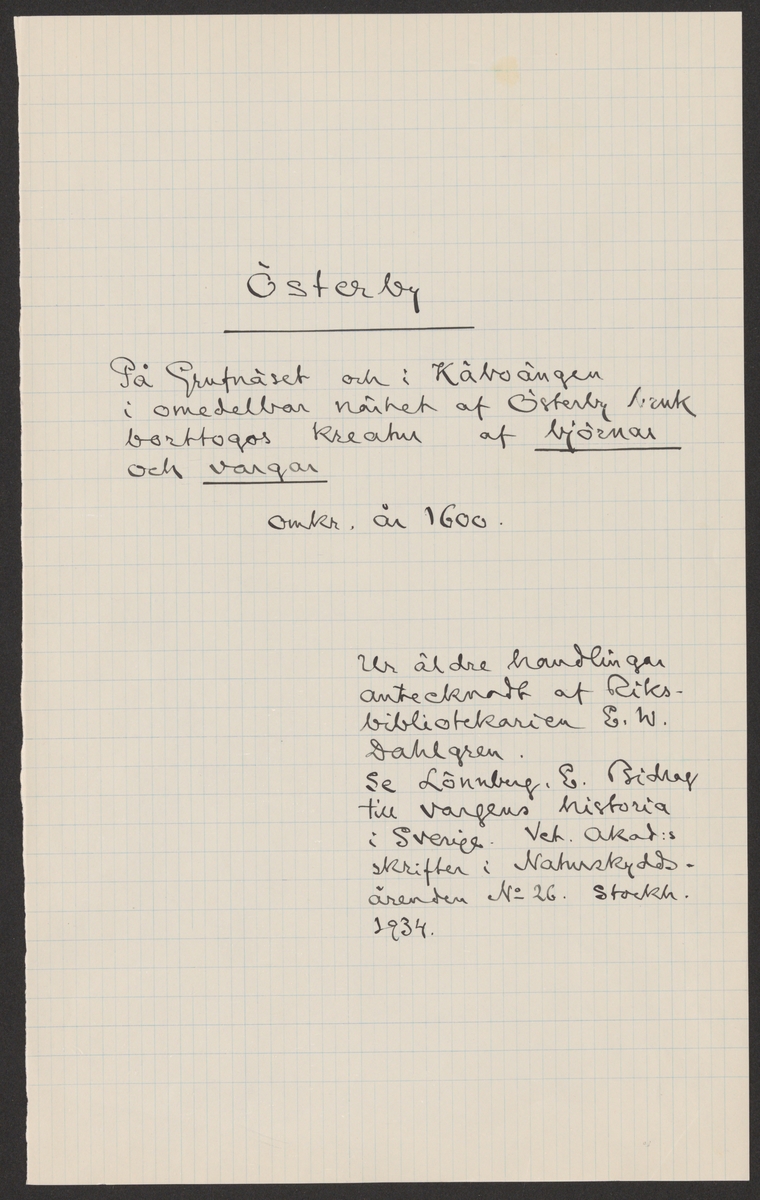 Österby
På Grufnäset och i Kåboängen
i omedelbar närhet af Österby bruk
borttogos kreatur af björnar
och vargar
omkr. år 1600.
Ur äldre handlingar
antecknadt af Riks-
bibliotekarien E. W.
Dahlgren.
Se Lönnberg, E. Bidrag
till vargens historia
i Sverige. Vet. Akad:s
skrifter i Naturskydds-
ärenden No 26. Stockh.
1934.